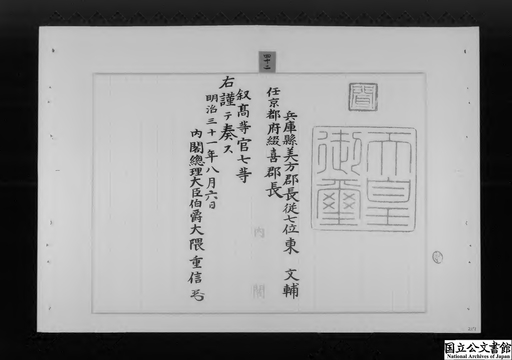 四十二
聞
天皇御璽
兵庫縣美方郡長從七位東文輔
任京都府綴喜郡長
叙高等官七等
右謹テ奏ス
明治三十一年八月六日
内閣總理大臣伯爵大隈重信
内閣
国立公文書館
National Archives of Japan